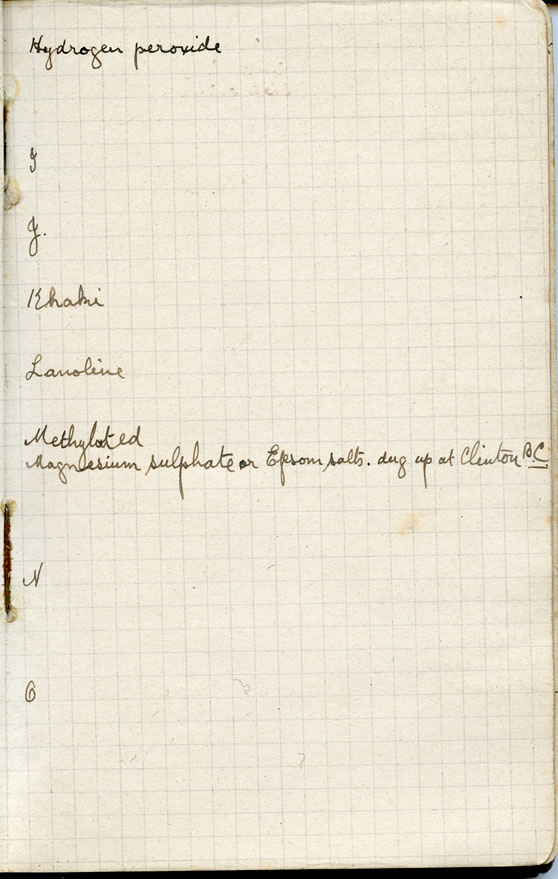 Hydrogen peroxide
I
J.
Khaki
Lanoline
Methylated
Magnesium sulphate or Epsom salts. dug up at Clinton B.C.
N
O